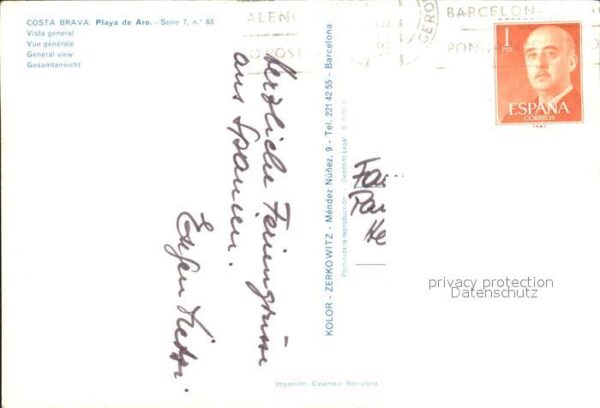 COSTA BRAVA. Playa de Aro. - Serie 7, n.° 63
Vista general
Vue générale
General view
Gesamtansicht
Herzliche Feriengrüsse
aus Spanien.
KOLOR - ZERKOWITZ - Méndez Núñez, 9 - Tel. 221 42 55 - Barcelona
Prohibida la reproducción - Depósito Legal
Impresión: Casamajó Barcelona
BARCELONA
1
PTA
ESPAÑA
CORREOS
privacy protection
Datenschutz